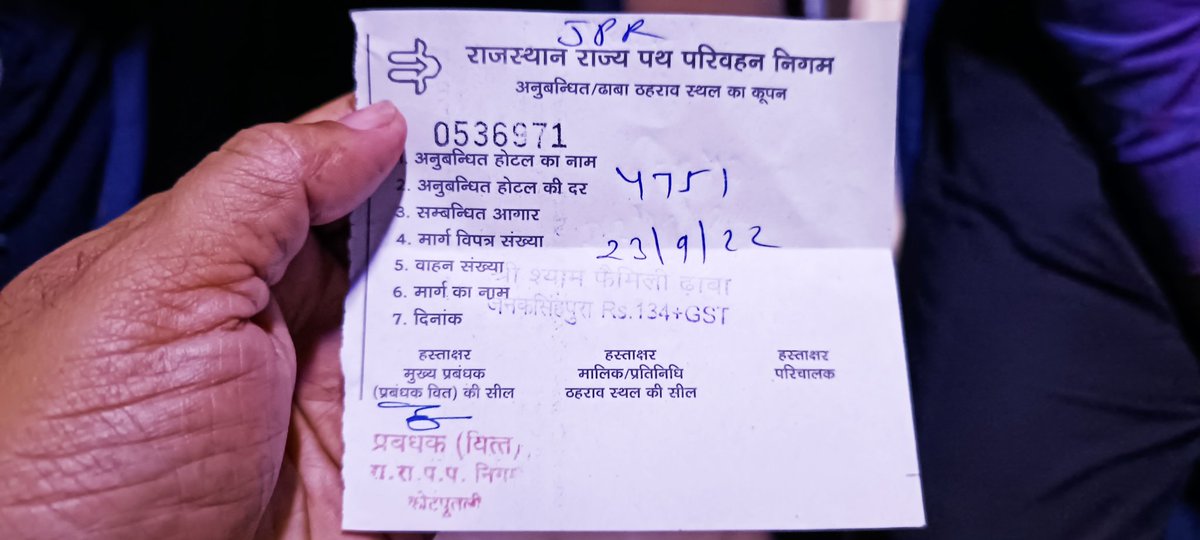 JPR
राजस्थान राज्य पथ परिवहन निगम
अनुबन्धित/ढाबा ठहराव स्थल का कूपन
0536971
1. अनुबन्धित होटल का नाम
2. अनुबन्धित होटल की दर 4751
3. सम्बन्धित आगार
4. मार्ग विपत्र संख्या 23/9/22
5. वाहन संख्या
श्री श्याम फैमिली ढ़ाबा
6. मार्ग का नाम
जनकसिंहपुरा Rs.134+GST
7. दिनांक
हस्ताक्षर हस्ताक्षर हस्ताक्षर
मुख्य प्रबंधक मालिक/प्रतिनिधि परिचालक
(प्रबंधक वित) की सील ठहराव स्थल की सील
प्रबंधक (वित्त)
रा.रा.प.प. निगम
कोटपूतली